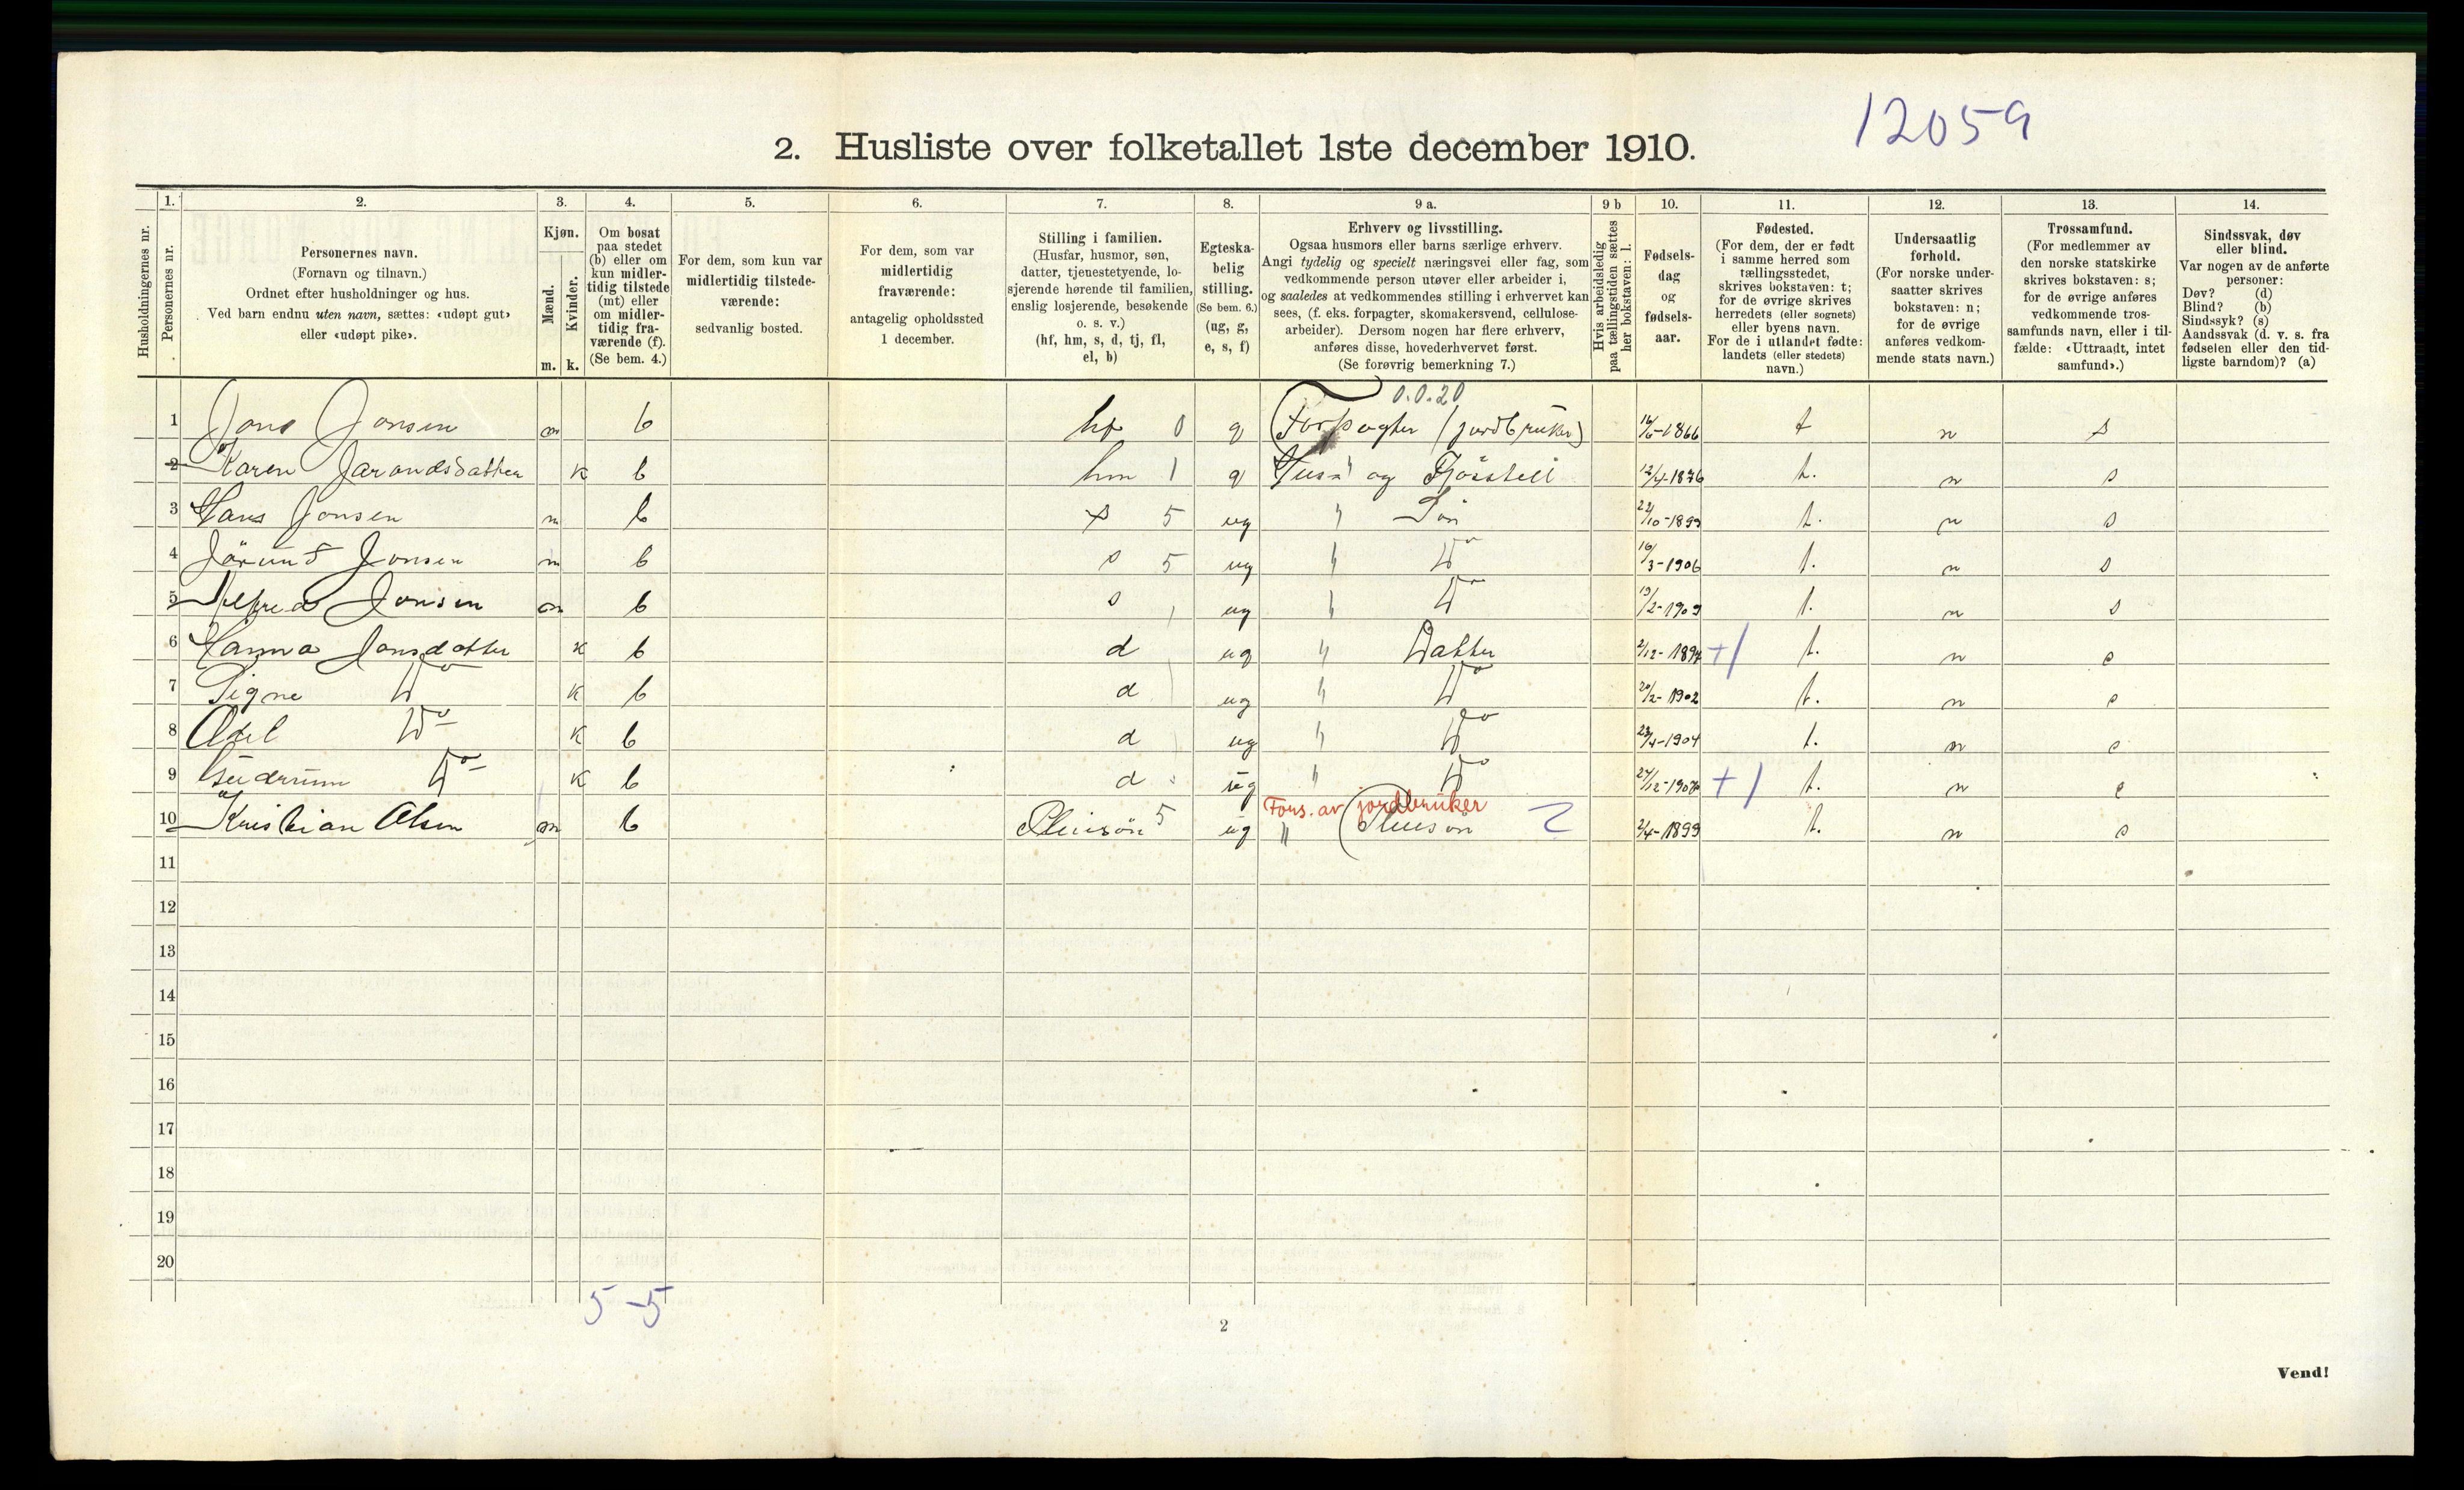 12059
2. Husliste over folketallet 1ste december 1910.
Husholdningernes nr.
1. Personernes nr.
2. Personernes navn.
(Fornavn og tilnavn.)
Ordnet efter husholdninger og hus.
Ved barn endnu uten navn, sættes: «udøpt gut»
eller «udøpt pike».
3. Kjøn.
Mænd. m.
Kvinder. k.
4. Om bosat
paa stedet
(b) eller om
kun midler-
tidig tilstede
(mt) eller
om midler-
tidig fra-
værende (f).
(Se bem. 4.)
5. For dem, som kun var
midlertidig tilstede-
værende:
sedvanlig bosted.
6. For dem, som var
midlertidig
fraværende:
antagelig opholdssted
1 december.
7. Stilling i familien.
(Husfar, husmor, søn,
datter, tjenestetyende, lo-
sjerende hørende til familien,
enslig losjerende, besøkende
o. s. v.)
(hf, hm, s, d, tj, fl,
el, b)
8. Egteska-
belig
stilling.
(Se bem. 6.)
(ug, g,
e, s, f)
9 a. Erhverv og livsstilling.
Ogsaa husmors eller barns særlige erhverv.
Angi tydelig og specielt næringsvei eller fag, som
vedkommende person utøver eller arbeider i,
og saaledes at vedkommendes stilling i erhvervet kan
sees, (f. eks. forpagter, skomakersvend, cellulose-
arbeider). Dersom nogen har flere erhverv,
anføres disse, hovederhvervet først.
(Se forøvrig bemerkning 7.)
9 b Hvis arbeidsledig
paa tællingstiden sættes
her bokstaven: l.
10. Fødsels-
dag
og
fødsels-
aar.
11. Fødested.
(For dem, der er født
i samme herred som
tællingsstedet,
skrives bokstaven: t;
for de øvrige skrives
herredets (eller sognets)
eller byens navn.
For de i utlandet fødte:
landets (eller stedets)
navn.)
12. Undersaatlig
forhold.
(For norske under-
saatter skrives
bokstaven: n;
for de øvrige
anføres vedkom-
mende stats navn.)
13. Trossamfund.
(For medlemmer av
den norske statskirke
skrives bokstaven: s;
for de øvrige anføres
vedkommende tros-
samfunds navn, eller i til-
fælde: «Uttraadt, intet
samfund».)
14. Sindssvak, døv
eller blind.
Var nogen av de anførte
personer:
Døv? (d)
Blind? (b)
Sindssyk? (s)
Aandssvak (d. v. s. fra
fødselen eller den tid-
ligste barndom)? (a)
0.0.20
1 Jons Jonsen m b hf 0 g Forpagter (jordbruker) 1866 t n s
2 Karen Jarandsdatter k b hm 1 g Hus og Fjösstell 12/4-1876 t. n s
3 Hans Jonsen m b s 5 ug " Sön 22/10-1899 t. n s
4 Jörund Jonsen m b s 5 ug " Do 16/3-1906 t. n s
5 Alfred Jonsen m b s ug " Do 19/2-1909 t. n s
6 Hanna Jonsdatter k b d ug " Datter 2/12-1897 +1 t. n s
7 Signe Do k b d ug " Do 20/2-1902 t. n s
8 Do k b d ug " Do 1904 t. n s
9 Gudrunn Do k b d ug " Do +1 t. n s
Fors. av jordbruker
10 Kristian Olsen m b Pleiesön 5 ug " Pleiesön 2 2/4-1899 t. n s
11
12
13
14
15
16
17
18
19
20
5-5
2
Vend!